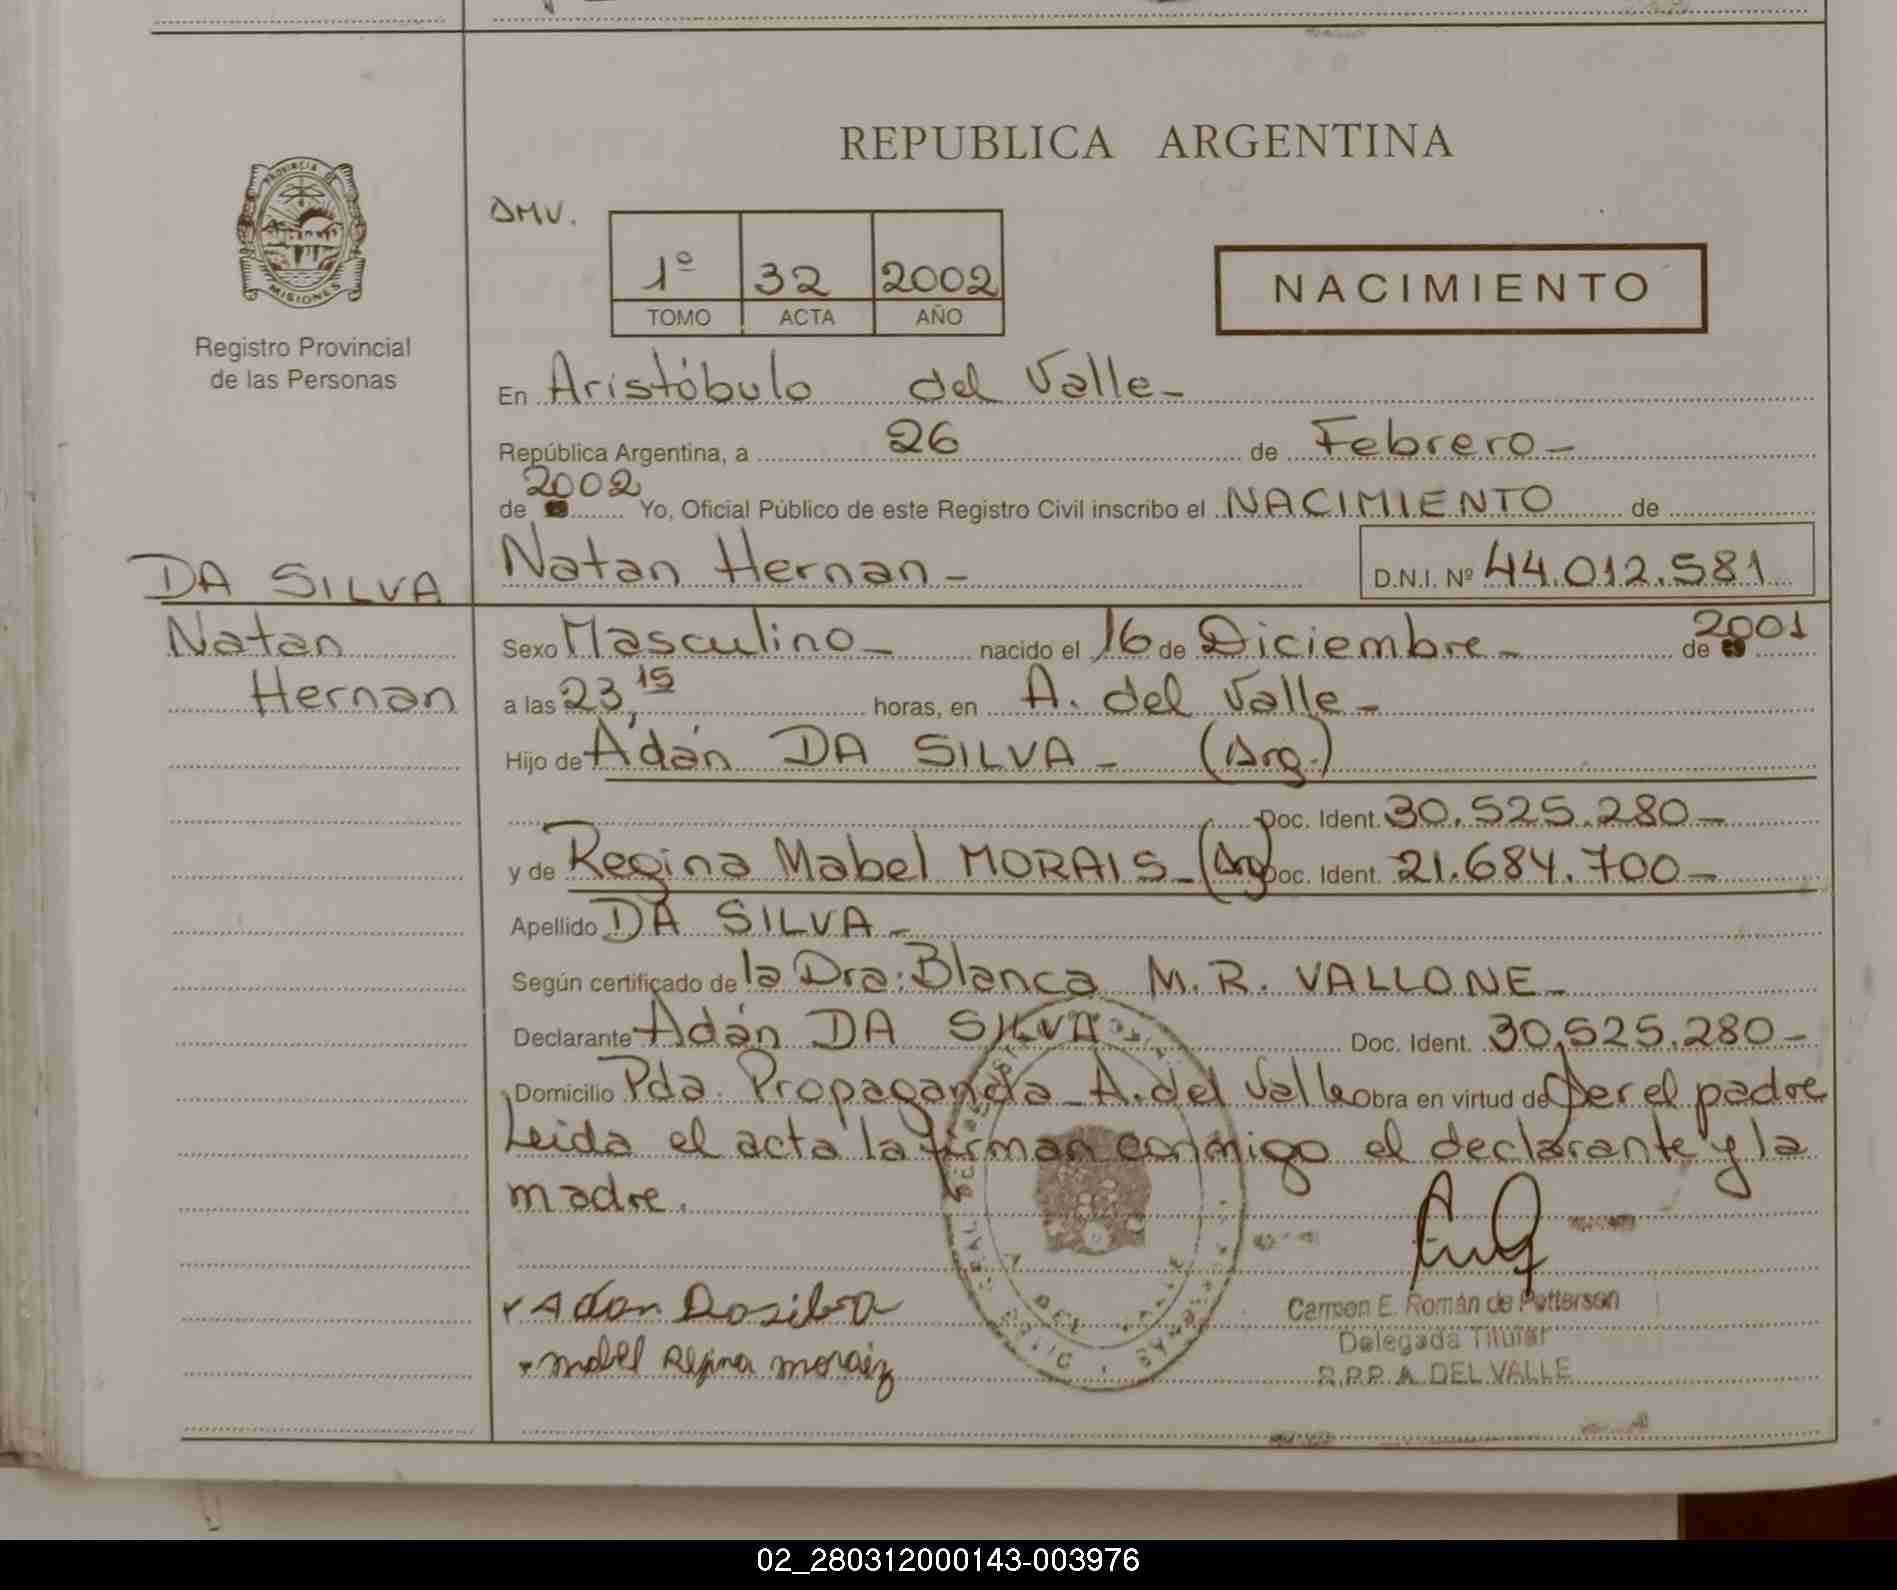 REPUBLICA ARGENTINA
PROVINCIA DE
MISIONES
Registro Provincial
de las Personas
DMV.
1º 32 2002
TOMO ACTA AÑO
NACIMIENTO
En Aristóbulo del Valle -
República Argentina, a 26 de Febrero -
2002
de Yo, Oficial Público de este Registro Civil inscribo el NACIMIENTO de
DA SILVA
Natan Hernan - D.N.I. Nº 44.012.581
Natan
Hernan
Sexo Masculino - nacido el 16 de Diciembre - de 2001
a las 23,15 horas, en A. del Valle -
Hijo de Adán DA SILVA - (Arg.)
Doc. Ident. 30.525.280 -
y de Regina Mabel MORAIS - (Arg) Doc. Ident. 21.684.700 -
Apellido DA SILVA -
Según certificado de la Dra. Blanca M. R. VALLONE -
Declarante Adán DA SILVA Doc. Ident. 30.525.280 -
Domicilio Pda. Propaganda - A. del Valle obra en virtud de ser el padre
Leida el acta la firman conmigo el declarante y la
madre.
Adan Dasilva
Mabel Regina Moraiz
Carmen E. Román de Petterson
Delegada Titular
R.P.P. A. DEL VALLE
02_280312000143-003976